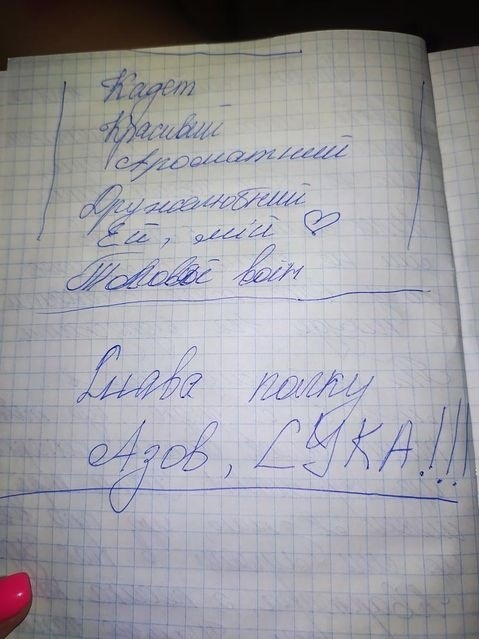 Кадет
Красивий
Ароматний
Дружолюбний
Ей, мій ♡
воїн
Слава полку
Азов, СУКА!!!